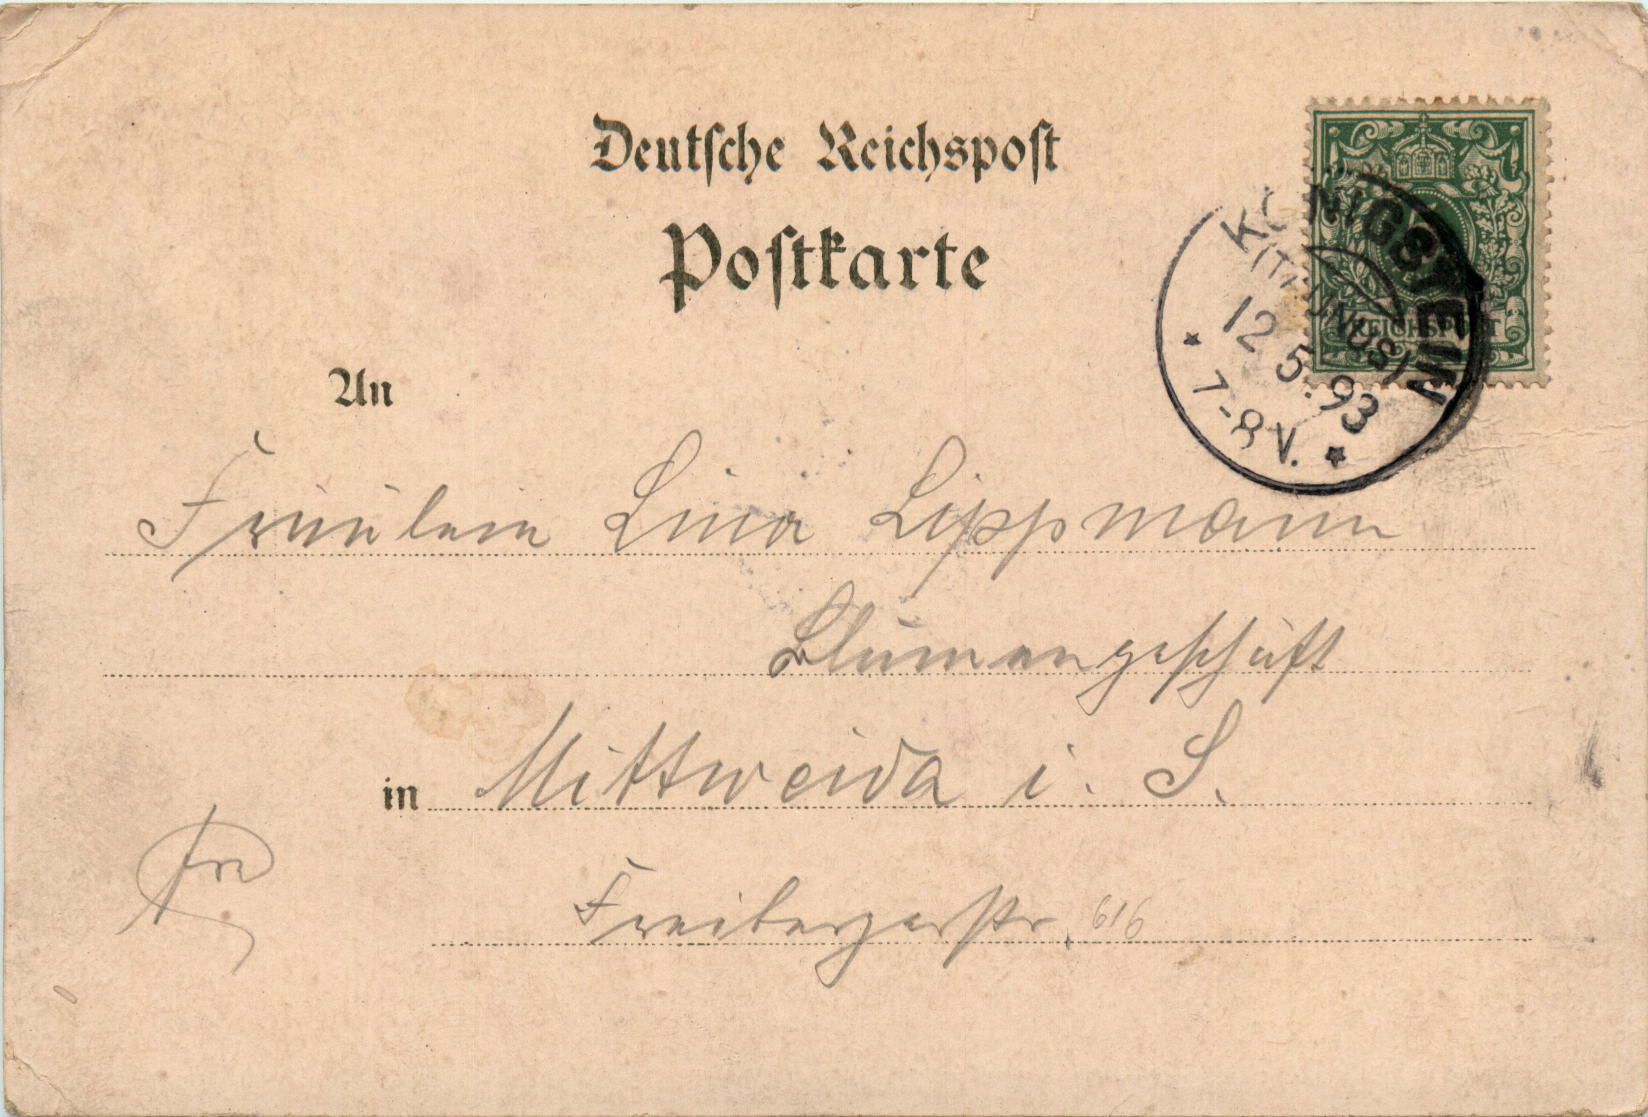 Deutsche Reichspost
Postkarte
5
REICHSPOST
KÖNIGSTEIN
(TAUNUS)
12 5. 93
7-8 V.
An
Fräulein Lina Lippmann
Blumengeschäft
in Mittweida i. S.
Freibergerstr. 616